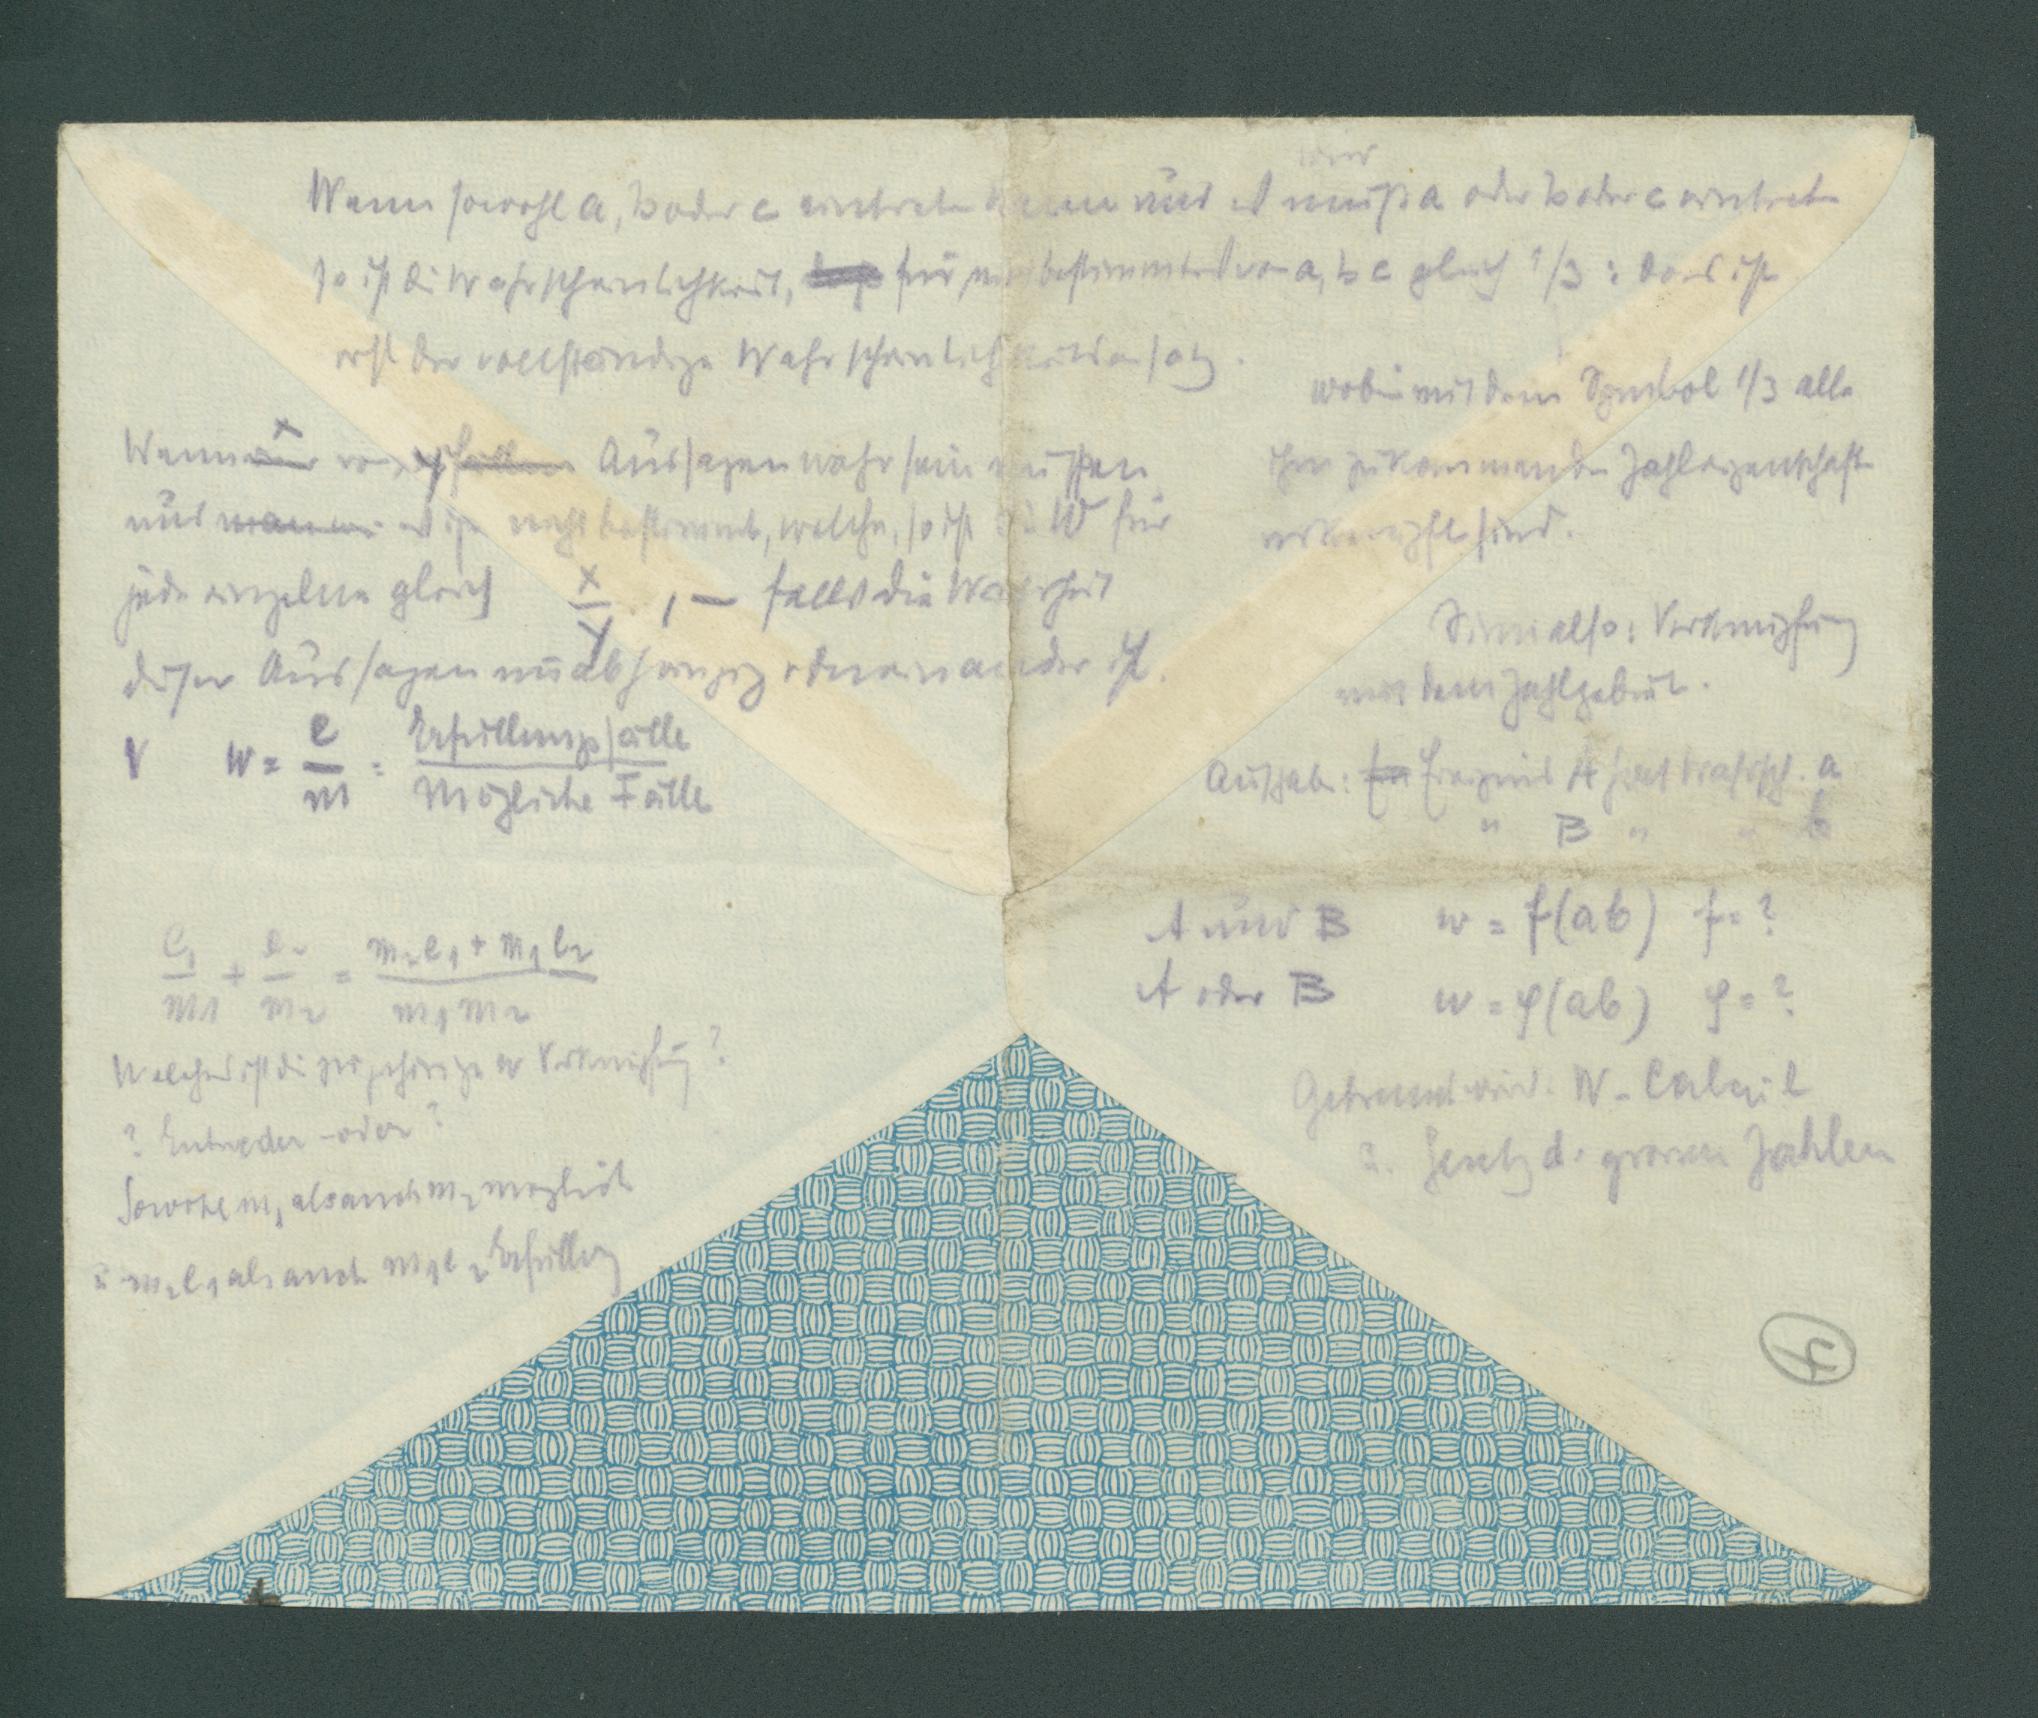 nur
Wenn sowohl a, b oder c eintreten kann und es muß a oder b oder c eintreten
so ist die Wahrscheinlichkeit, für ein bestimmtes von a, b c gleich 1/3 : das ist
erst der vollständige Wahrscheinlichkeitsansatz.
wobei mit dem Symbol 1/3 alle
ihm zukommenden Zahleigenschaften
verknüpft sind.
Wenn x von y Aussagen wahr sein müssen
und es ist nicht bestimmt, welche, so ist die W für
jede einzelne gleich x/y , – falls die Wahrheit
dieser Aussagen unabhängig voneinander ist.
Sinn also: Verknüpfung
mit dem Zahlgebiet.
V w = e/m = Erfüllungsfälle/Mögliche Fälle
Aufgabe: Ereignis A hat Wahrsch. a
" B " " b
A und B w = f(ab) f = ?
A oder B w = φ(ab) φ = ?
Getrennt wird: W-Calcül
u. Gesetz d. grossen Zahlen
e₁/m₁ + e₂/m₂ = m₂e₁ + m₁e₂/m₁m₂
Welches ist die zugehörige w Verknüpfung?
? Entweder-oder?
Sowohl m₁ als auch m₂ möglich
u m₂e₁ als auch m₁e₂ Erfüllung